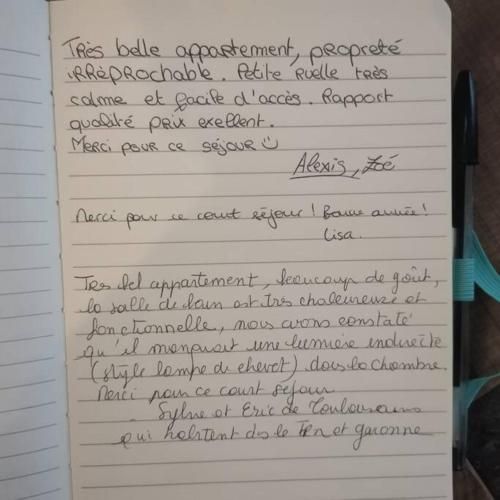 Très belle appartement, propreté
irréprochable. Petite ruelle très
calme et facile d'accès. Rapport
qualité prix exellent.
Merci pour ce séjour
Alexis, Zoé
Merci pour ce court séjour ! Bonne année !
Lisa.
Tres bel appartement, beaucoup de goût,
la salle de bain est tres chaleureuse et
fonctionnelle, nous avons constaté
qu'il manquait une lumière indirecte
(style lampe de chevet) dans la chambre.
Merci pour ce court sejour
Sylvie et Eric de
qui habitent ds le et garonne